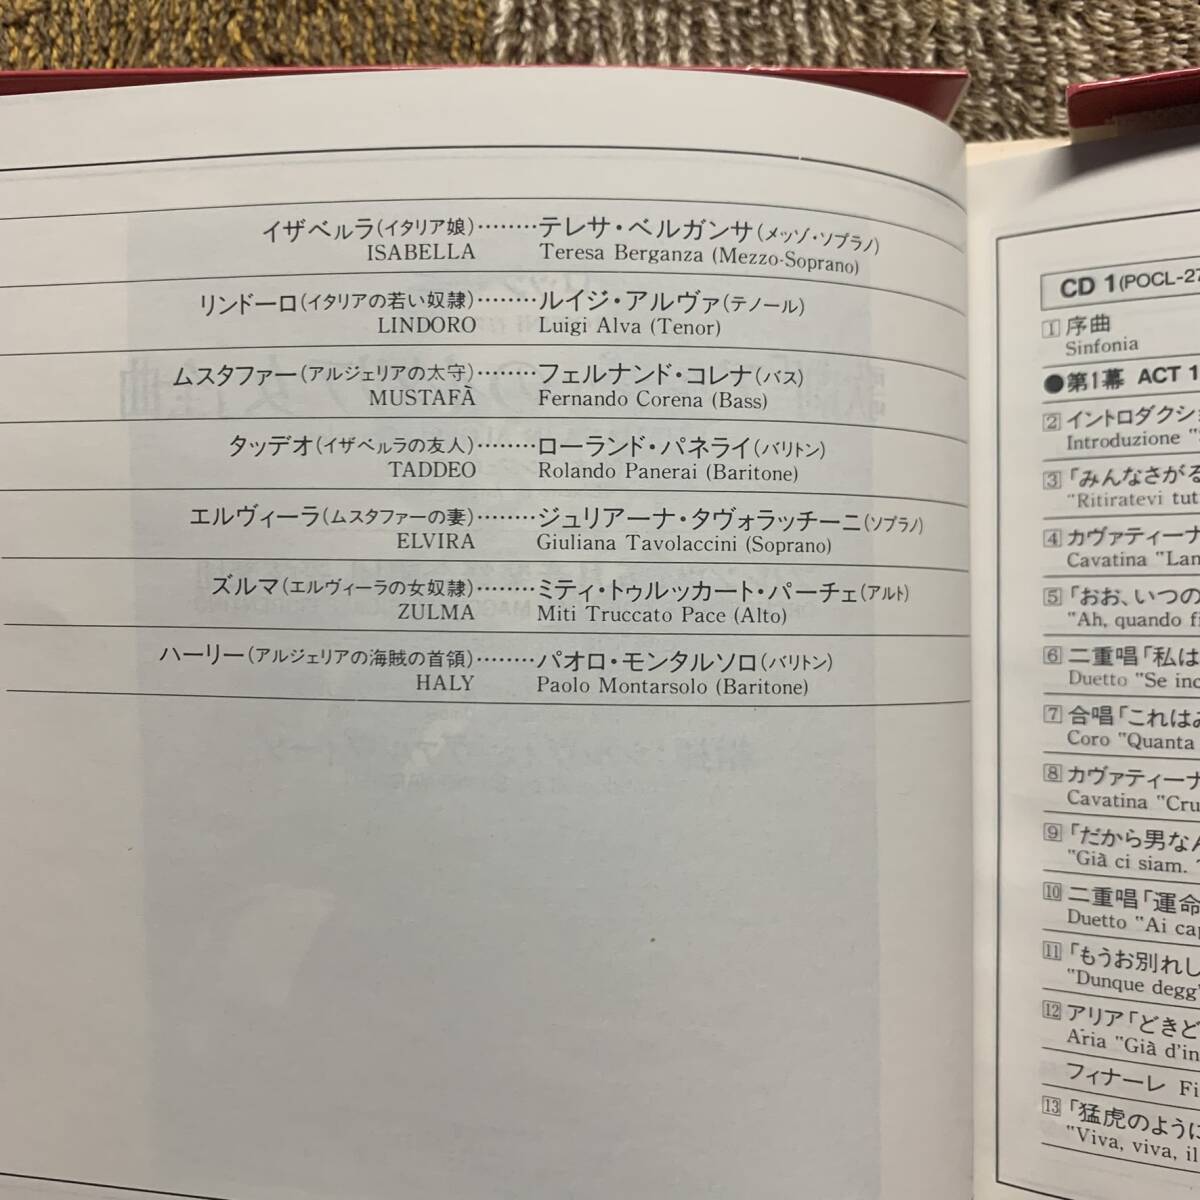 イザベルラ(イタリア娘)‥‥‥‥テレサ・ベルガンサ(メッゾ・ソプラノ)
ISABELLA Teresa Berganza (Mezzo-Soprano)
リンドーロ(イタリアの若い奴隷)‥‥‥‥ルイジ・アルヴァ(テノール)
LINDORO Luigi Alva (Tenor)
ムスタファー(アルジェリアの太守)‥‥‥‥フェルナンド・コレナ(バス)
MUSTAFÀ Fernando Corena (Bass)
タッデオ(イザベルラの友人)‥‥‥‥ローランド・パネライ(バリトン)
TADDEO Rolando Panerai (Baritone)
エルヴィーラ(ムスタファーの妻)‥‥‥‥ジュリアーナ・タヴォラッチーニ(ソプラノ)
ELVIRA Giuliana Tavolaccini (Soprano)
ズルマ(エルヴィーラの女奴隷)‥‥‥‥ミティ・トゥルッカート・パーチェ(アルト)
ZULMA Miti Truccato Pace (Alto)
ハーリー(アルジェリアの海賊の首領)‥‥‥‥パオロ・モンタルソロ(バリトン)
HALY Paolo Montarsolo (Baritone)
CD 1(POCL-27
1 序曲
Sinfonia
●第1幕 ACT 1
2 イントロダクショ
Introduzione "
3 「みんなさがる
"Ritiratevi tut
4 カヴァティーナ
Cavatina "Lan
5 「おお、いつの
"Ah, quando fi
6 二重唱「私は
Duetto "Se inc
7 合唱「これはま
Coro "Quanta
8 カヴァティーナ
Cavatina "Cru
9 「だから男なん
"Già ci siam.
10 二重唱「運命
Duetto "Ai cap
11 「もうお別れし
"Dunque degg'
12 アリア「どきど
Aria "Già d'in
フィナーレ Fi
13 「猛虎のように
"Viva, viva, il